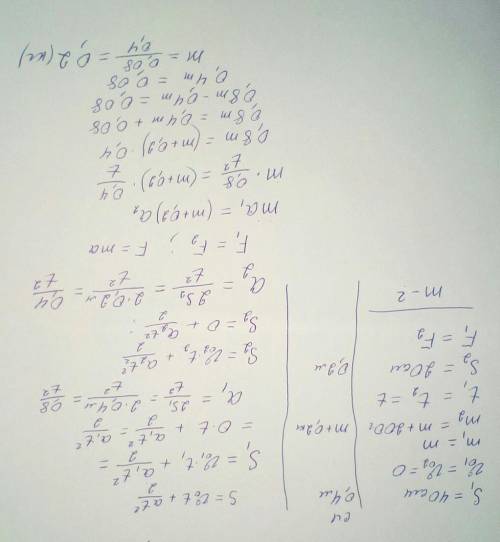 S₁ = 40см
v₀₁ = v₀₂ = 0
m₁ = m
m₂ = m + 200г
t₁ = t₂ = t
S₂ = 20см
F₁ = F₂
m - ?
СИ
0,4м
m+0,2кг
0,2м
S = v₀t + at²/2
S₁ = v₀₁·t₁ + a₁t²/2 =
= 0·t + a₁t²/2 = a₁t²/2
a₁ = 2S₁/t² = 2·0,4м/t² = 0,8/t²
S₂ = v₀₂·t₂ + a₂t²/2
S₂ = 0 + a₂t²/2 ;
a₂ = 2S₂/t² = 2·0,2м/t² = 0,4/t²
F₁ = F₂ ; F = ma
ma₁ = (m+0,2)a₂
m · 0,8/t² = (m+0,2) · 0,4/t
0,8m = (m+0,2) · 0,4
0,8m = 0,4m + 0,08
0,8m - 0,4m = 0,08
0,4m = 0,08
m = 0,08/0,4 = 0,2(кг)